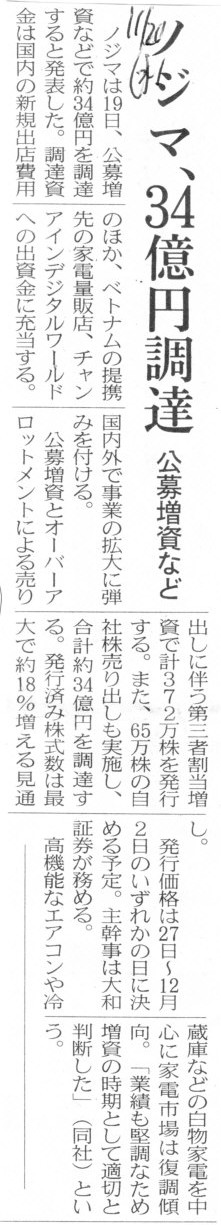 11/20
(木)
ノジマ、34億円調達
公募増資など
　ノジマは19日、公募増
資などで約34億円を調達
すると発表した。調達資
金は国内の新規出店費用
のほか、ベトナムの提携
先の家電量販店、チャン
アインデジタルワールド
への出資金に充当する。
国内外で事業の拡大に弾
みを付ける。
　公募増資とオーバーア
ロットメントによる売り
出しに伴う第三者割当増
資で計372万株を発行
する。また、65万株の自
社株売り出しも実施し、
合計約34億円を調達す
る。発行済み株式数は最
大で約18％増える見通
し。
　発行価格は27日～12月
2日のいずれかの日に決
める予定。主幹事は大和
証券が務める。
　高機能なエアコンや冷
蔵庫などの白物家電を中
心に家電市場は復調傾
向。「業績も堅調なため
増資の時期として適切と
判断した」（同社）とい
う。